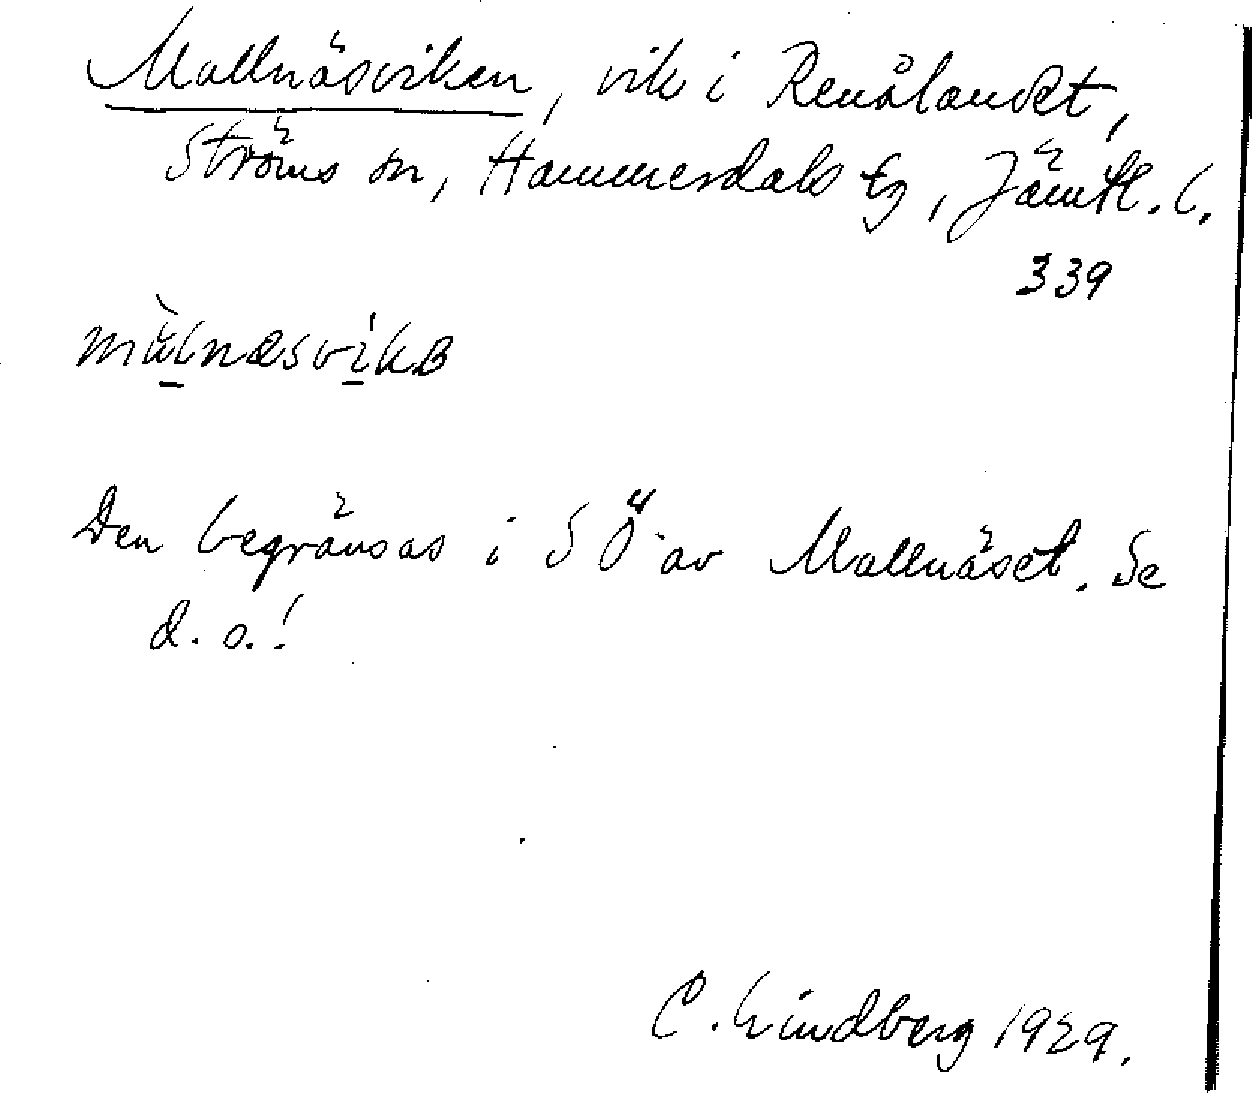 Mallnäsviken, vik i Renålandet,
Ströms sn, Hammerdals tg, Jämtl. l.
339
Den begränsas i SÖ av Mallnäset. Se
d. o.!
C. Lindberg 1929.